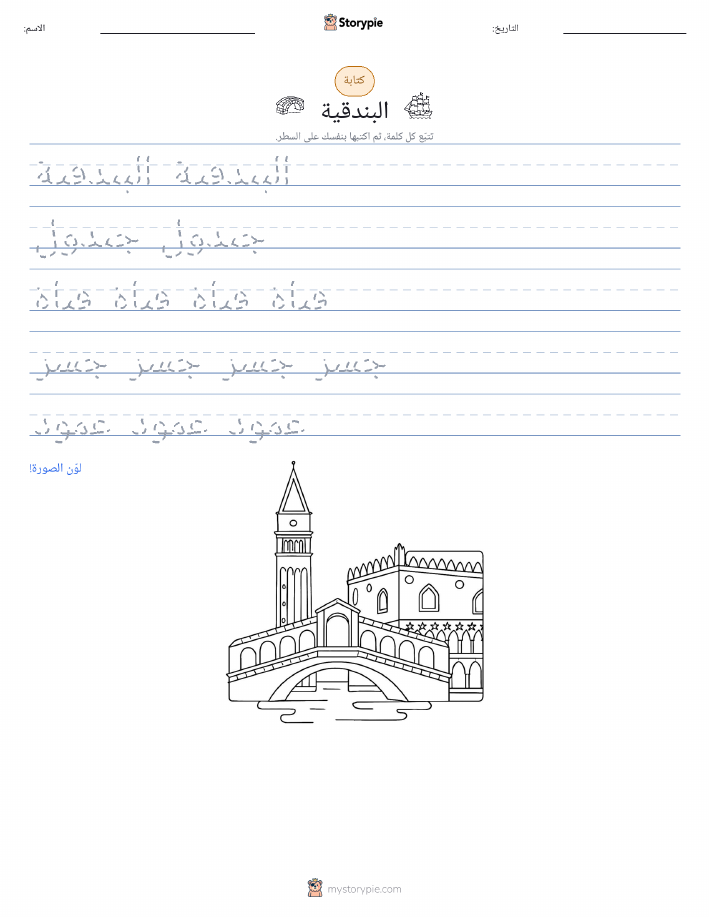 الاسم:
Storypie
التاريخ:
كتابة
البندقية
تتبّع كل كلمة، ثم اكتبها بنفسك على السطر.
البندقية البندقية
جندول جندول
قناة قناة قناة قناة
جسر جسر جسر جسر
عمود عمود عمود
لوّن الصورة!
mystorypie.com